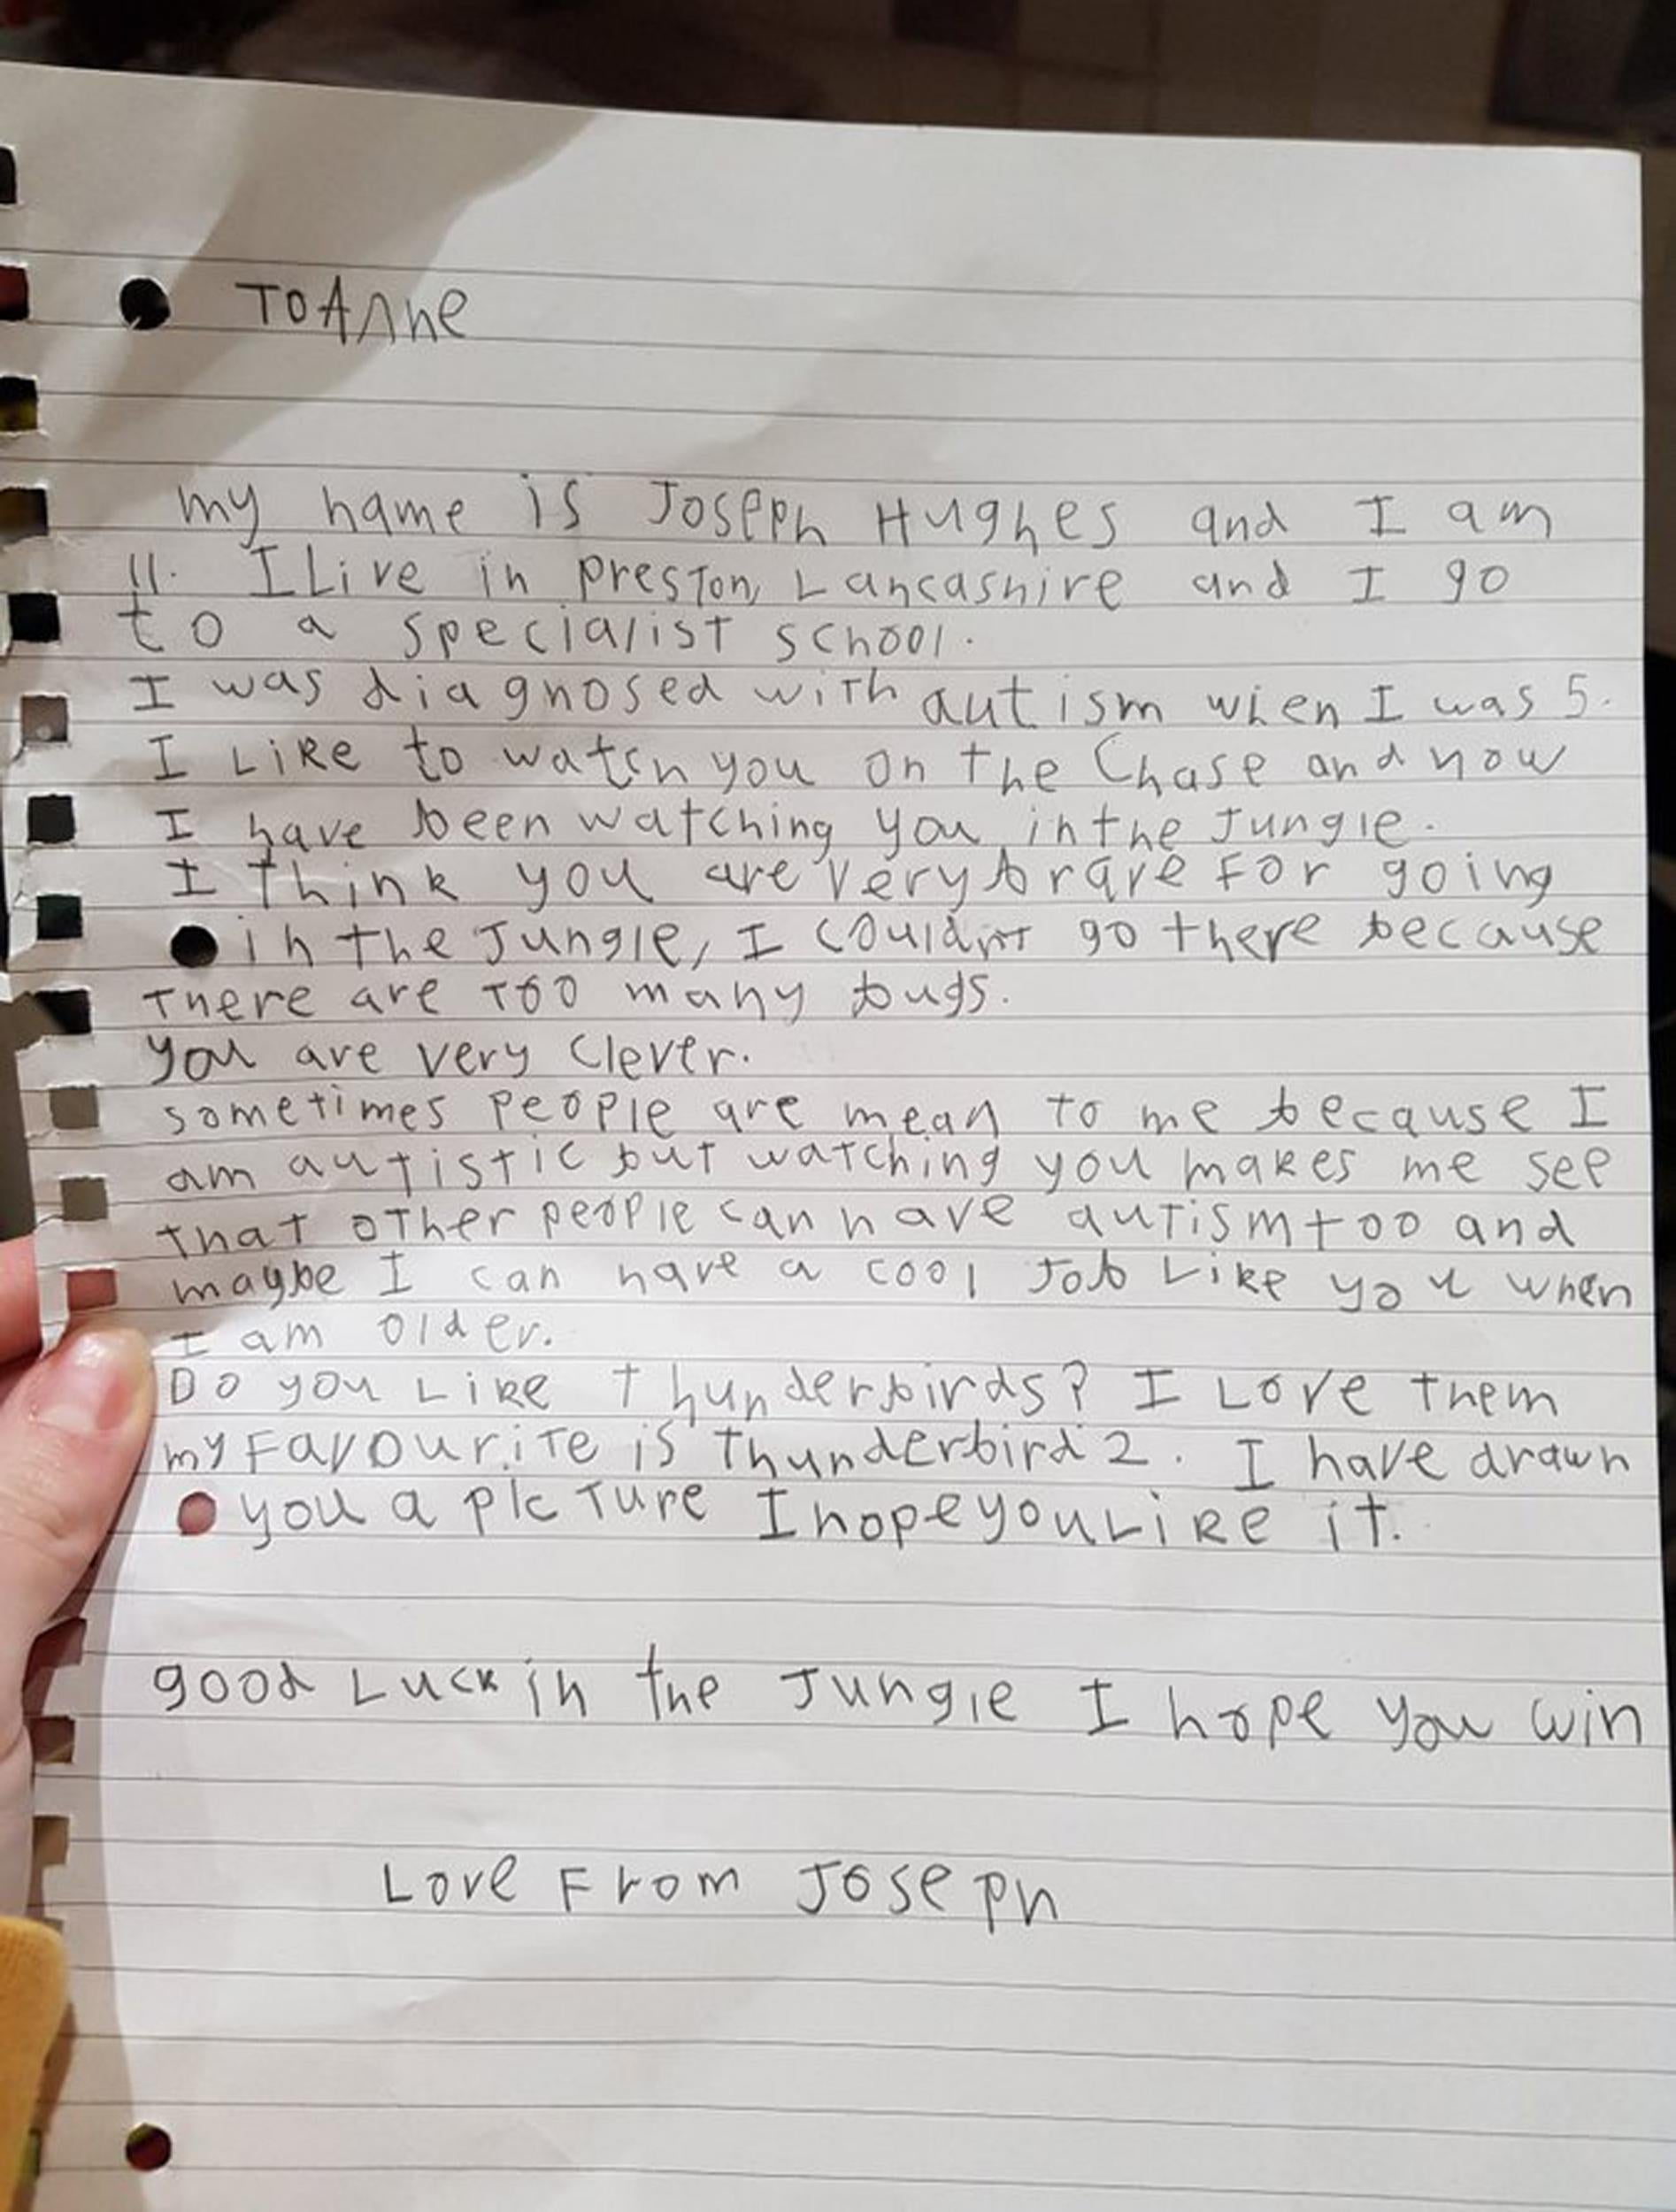 To Anne
my name is Joseph Hughes and I am
11. I Live in preston, Lancashire and I go
to a specialist school.
I was diagnosed with autism when I was 5.
I Like to watch you on the Chase and now
I have been watching you in the Jungle.
I think you are very brave For going
in the Jungle, I couldn't go there because
There are Too many bugs.
you are very Clever.
sometimes people are mean to me because I
am autistic but watching you makes me see
that other people can have autism too and
maybe I can have a cool Job Like you when
I am older.
Do you Like Thunderbirds? I Love them
my Favourite is Thunderbird 2. I have drawn
you a picture I hope you Like it.
good Luck in the Jungle I hope you win
Love From Joseph